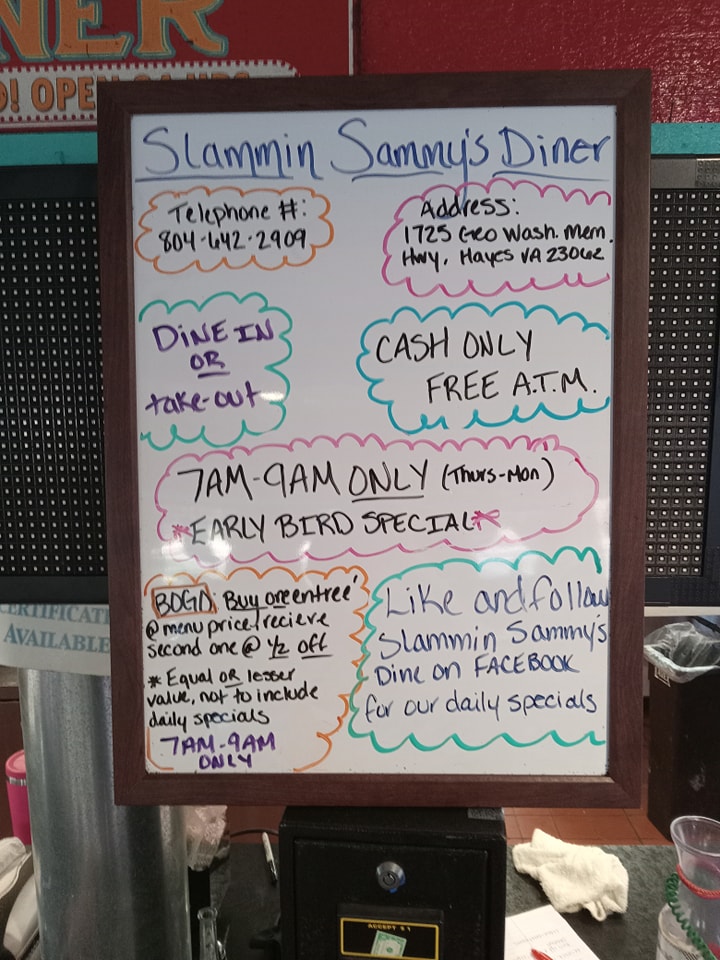 NER
D! OPEN
Slammin Sammy's Diner
Telephone #:
804-642-2909
Address:
1725 Geo Wash. Mem.
Hwy, Hayes VA 23062
DINE IN
OR
take-out
CASH ONLY
FREE A.T.M.
7AM-9AM ONLY (Thurs-Mon)
*EARLY BIRD SPECIAL*
BOGO: Buy one entree'
@ menu price/recieve
second one @ 1/2 off
* Equal OR lesser
value, not to include
daily specials
7AM-9AM
ONLY
Like and follow
Slammin Sammy's
Dine on FACEBOOK
for our daily specials
CERTIFICAT
AVAILABLE
ACCEPT $1